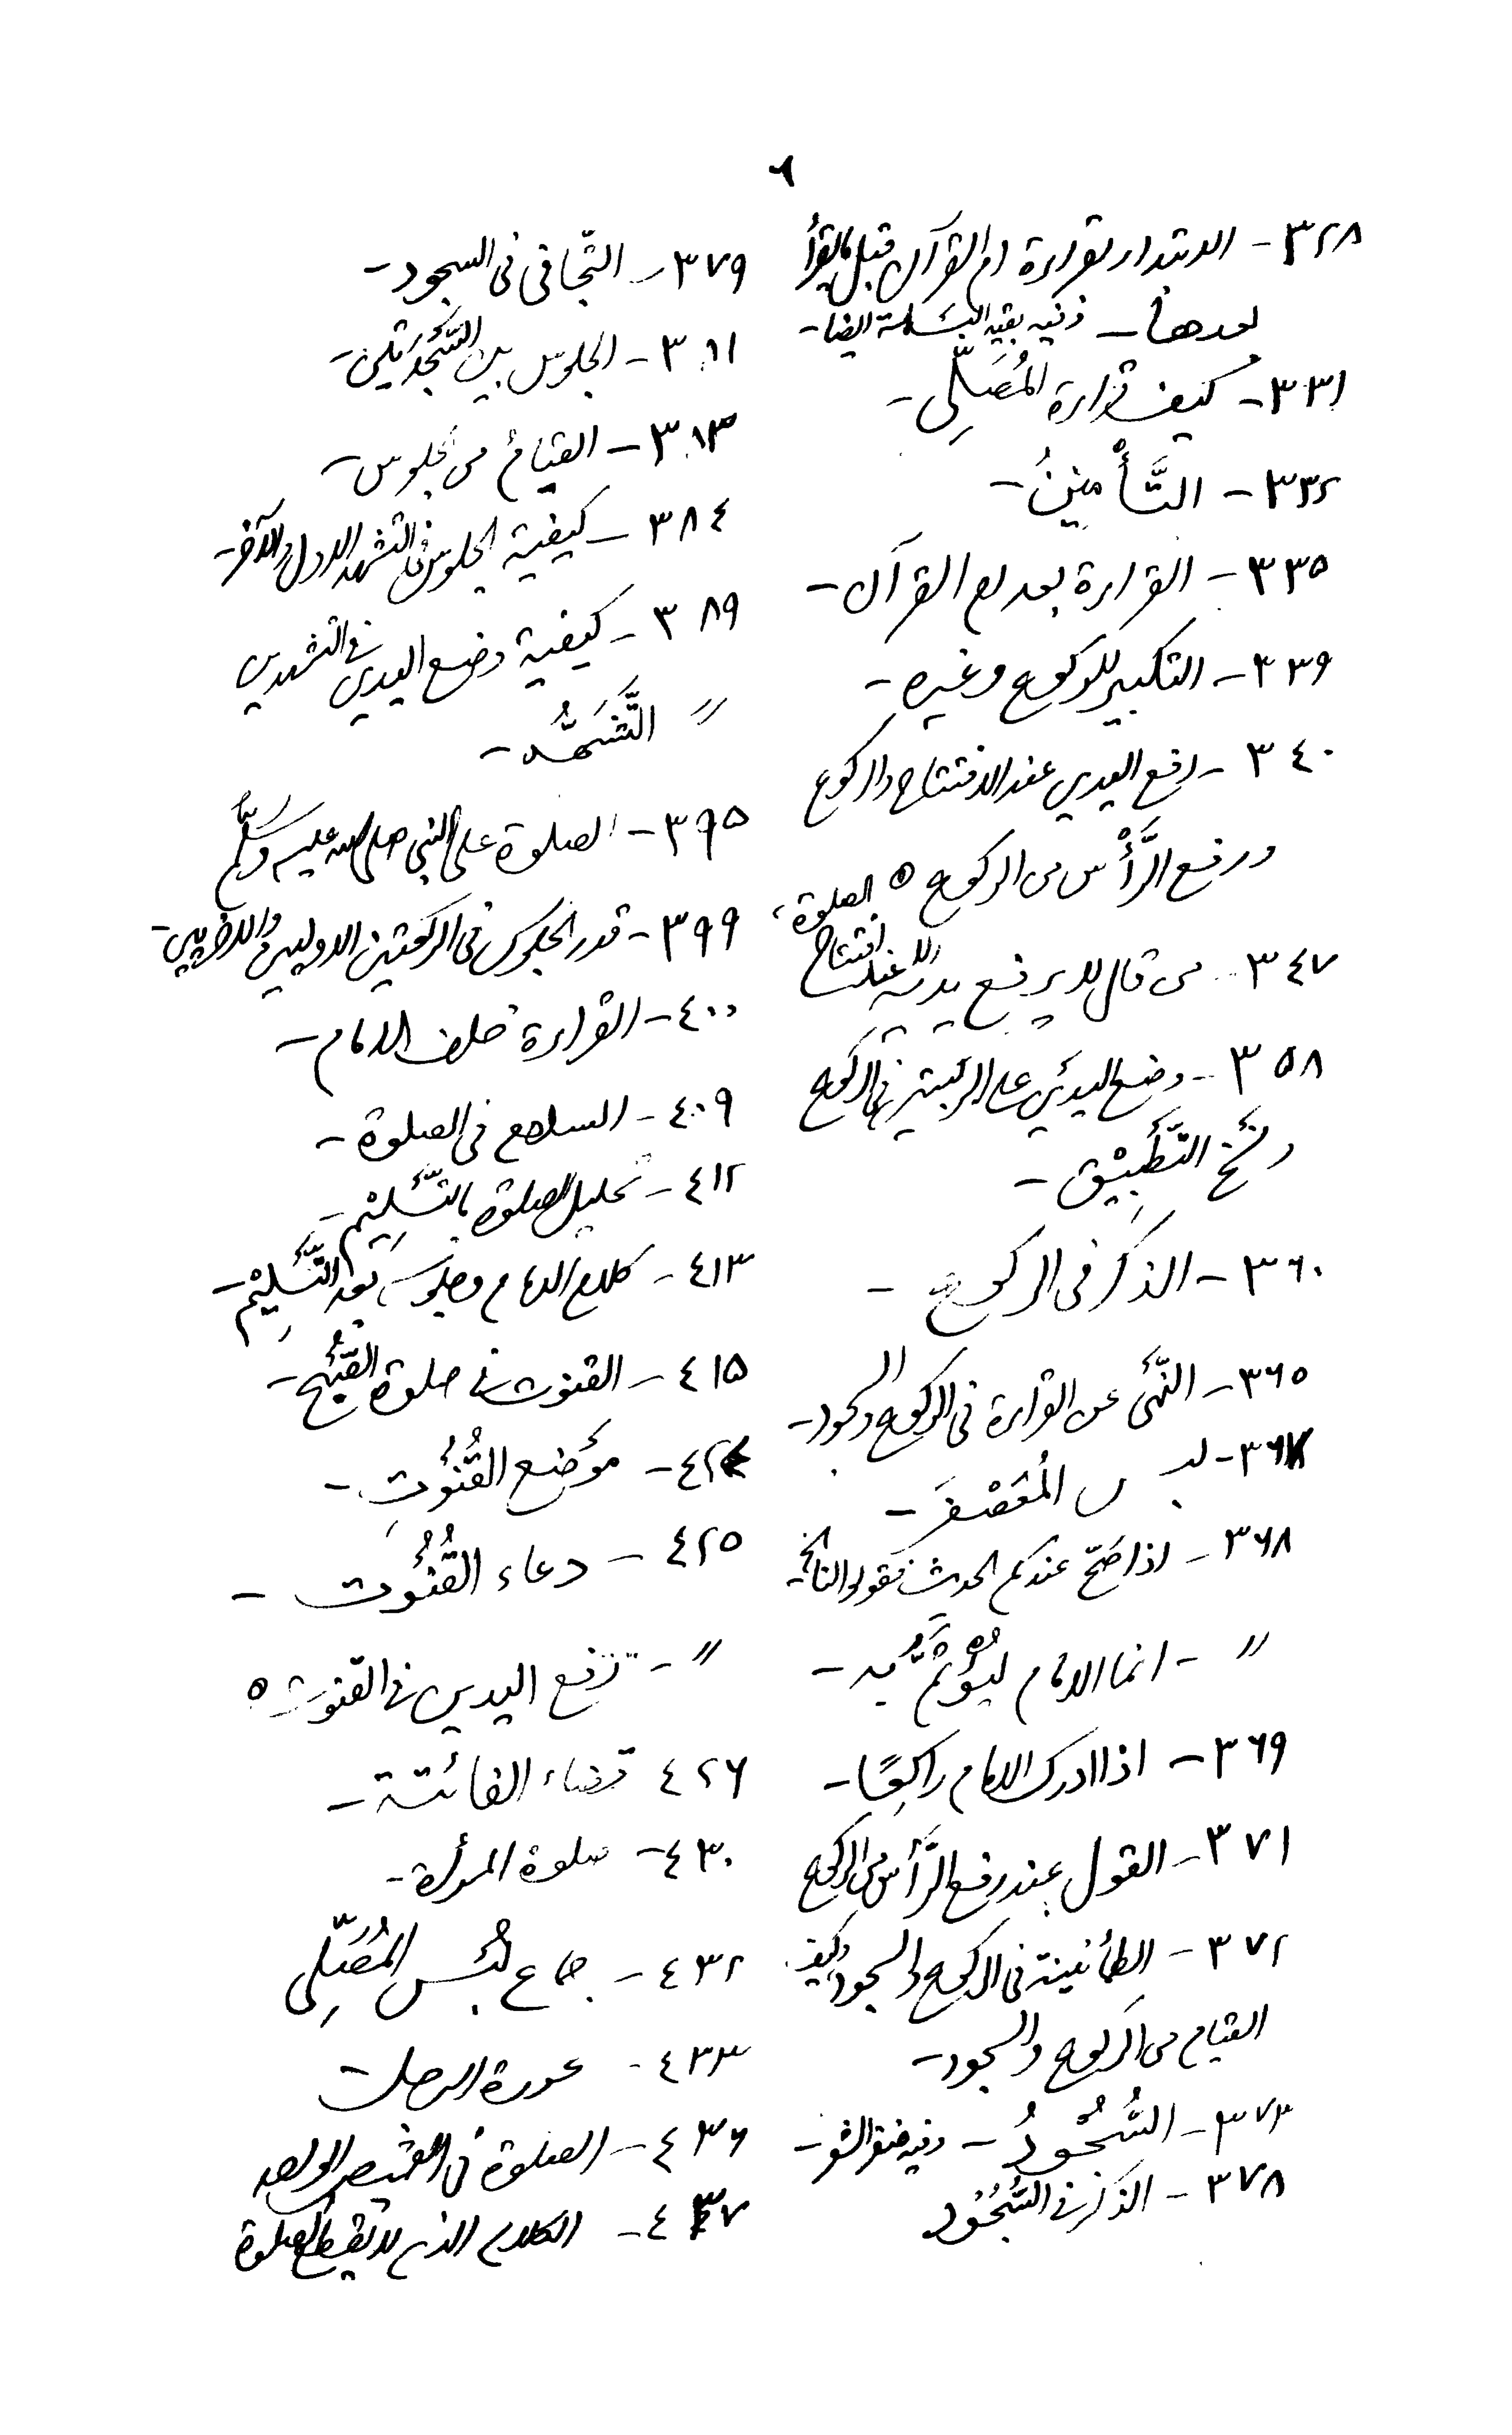 ٦
٣٢٨ - الابتداء بقراءة ام القرآن قبل ما يقرأ
بعدها - وفيه بقية البسملة ايضا -
٣٣١ - كيف قراءة المُصَلِّي -
٣٣٢ - التَّأْمِينُ -
٣٣٥ - القراءة بعد ام القرآن -
٣٣٩ - التكبير للركوع وغيره -
٣٤٠ - رفع اليدين عند الافتتاح والركوع
ورفع الرَّأْس من الركوع ٥
٣٤٧ - من قال لا يرفع يديه الا عند افتتاح الصلوة
٣٥٨ - وضع اليدين على الركبتين في الركوع
ونسخ التَّطْبِيْق -
٣٦٠ - الذكر في الركوع -
٣٦٥ - النّهى عن القراءة في الركوع والسجود -
٣٦٧ - لبس المُعَصْفَر -
٣٦٨ - اذا صَحّ عندكم الحديث فقولوا
〃 - انما الامام لِيُؤْتَمَّ به -
٣٦٩ - اذا ادرك الامام راكِعًا -
٣٧١ - القول عند رفع الرَّأس من الركوع
٣٧٢ - الطمأنينة في الركوع والسجود وكيف
القيام من الركوع والسجود -
٣٧٣ - السُّجُودُ - وفيه ضفر الشعر -
٣٧٨ - الذكر في السُّجُوْد
٣٧٩ - التّجافى فى السجود -
٣٨١ - الجلوس بين السَّجْدَتَين -
٣٨٣ - القيام من الجلوس -
٣٨٤ - كيفية الجلوس في التشهد الاول والآخر -
٣٨٩ - كيفية وضع اليدين في التشهدين
〃 التَّشَهُّد -
٣٩٥ - الصلوة على النبي صلى الله عليه وسَلَّم
٣٩٩ - قدر الجلوس في الركعتين الاوليين والاخريين -
٤٠٠ - القراءة خلف الامام -
٤٠٩ - السلام فى الصلوة -
٤١٢ - تحليل الصلوة بالتَّسْلِيْم -
٤١٣ - كلام الامام وجلوسه بعد التَّسْلِيْم -
٤١٥ - القنوت فى صلوة الصُّبْح -
٤٢٤ - مَوْضع القُنُوْتِ -
٤٢٥ - دعاء القُنُوْت -
〃 - رفع اليدين فى القنوت ٥
٤٢٦ قضاء الفائتة -
٤٣٠ - صلوة المرأة -
٤٣٢ - جماع لُبْس المُصَلِّى
٤٣٣ - عورة الرجل
٤٣٦ - الصلوة فى القميص الواحد
٤٣٧ - الكلام الذى لا يقطع الصلوة